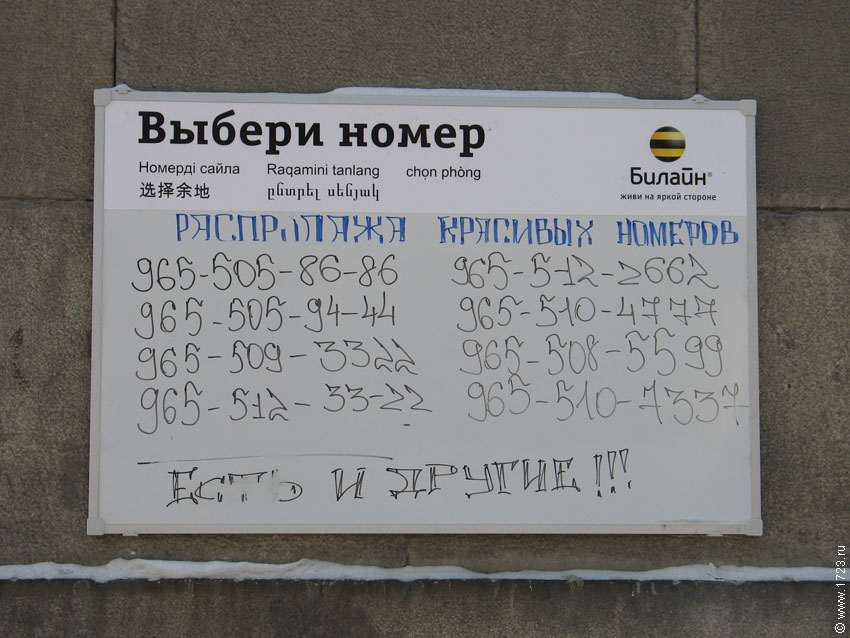 Выбери номер
Номерді сайла Raqamini tanlang chọn phòng
选择余地 ընտրել սենյակ
Билайн®
живи на яркой стороне
РАСПРОДАЖА КРАСИВЫХ НОМЕРОВ
965-505-86-86 965-512-2662
965-505-94-44 965-510-4777
965-509-3322 965-508-5599
965-512-33-22 965-510-7337
ЕСТЬ И ДРУГИЕ !!!
© www.1723.ru